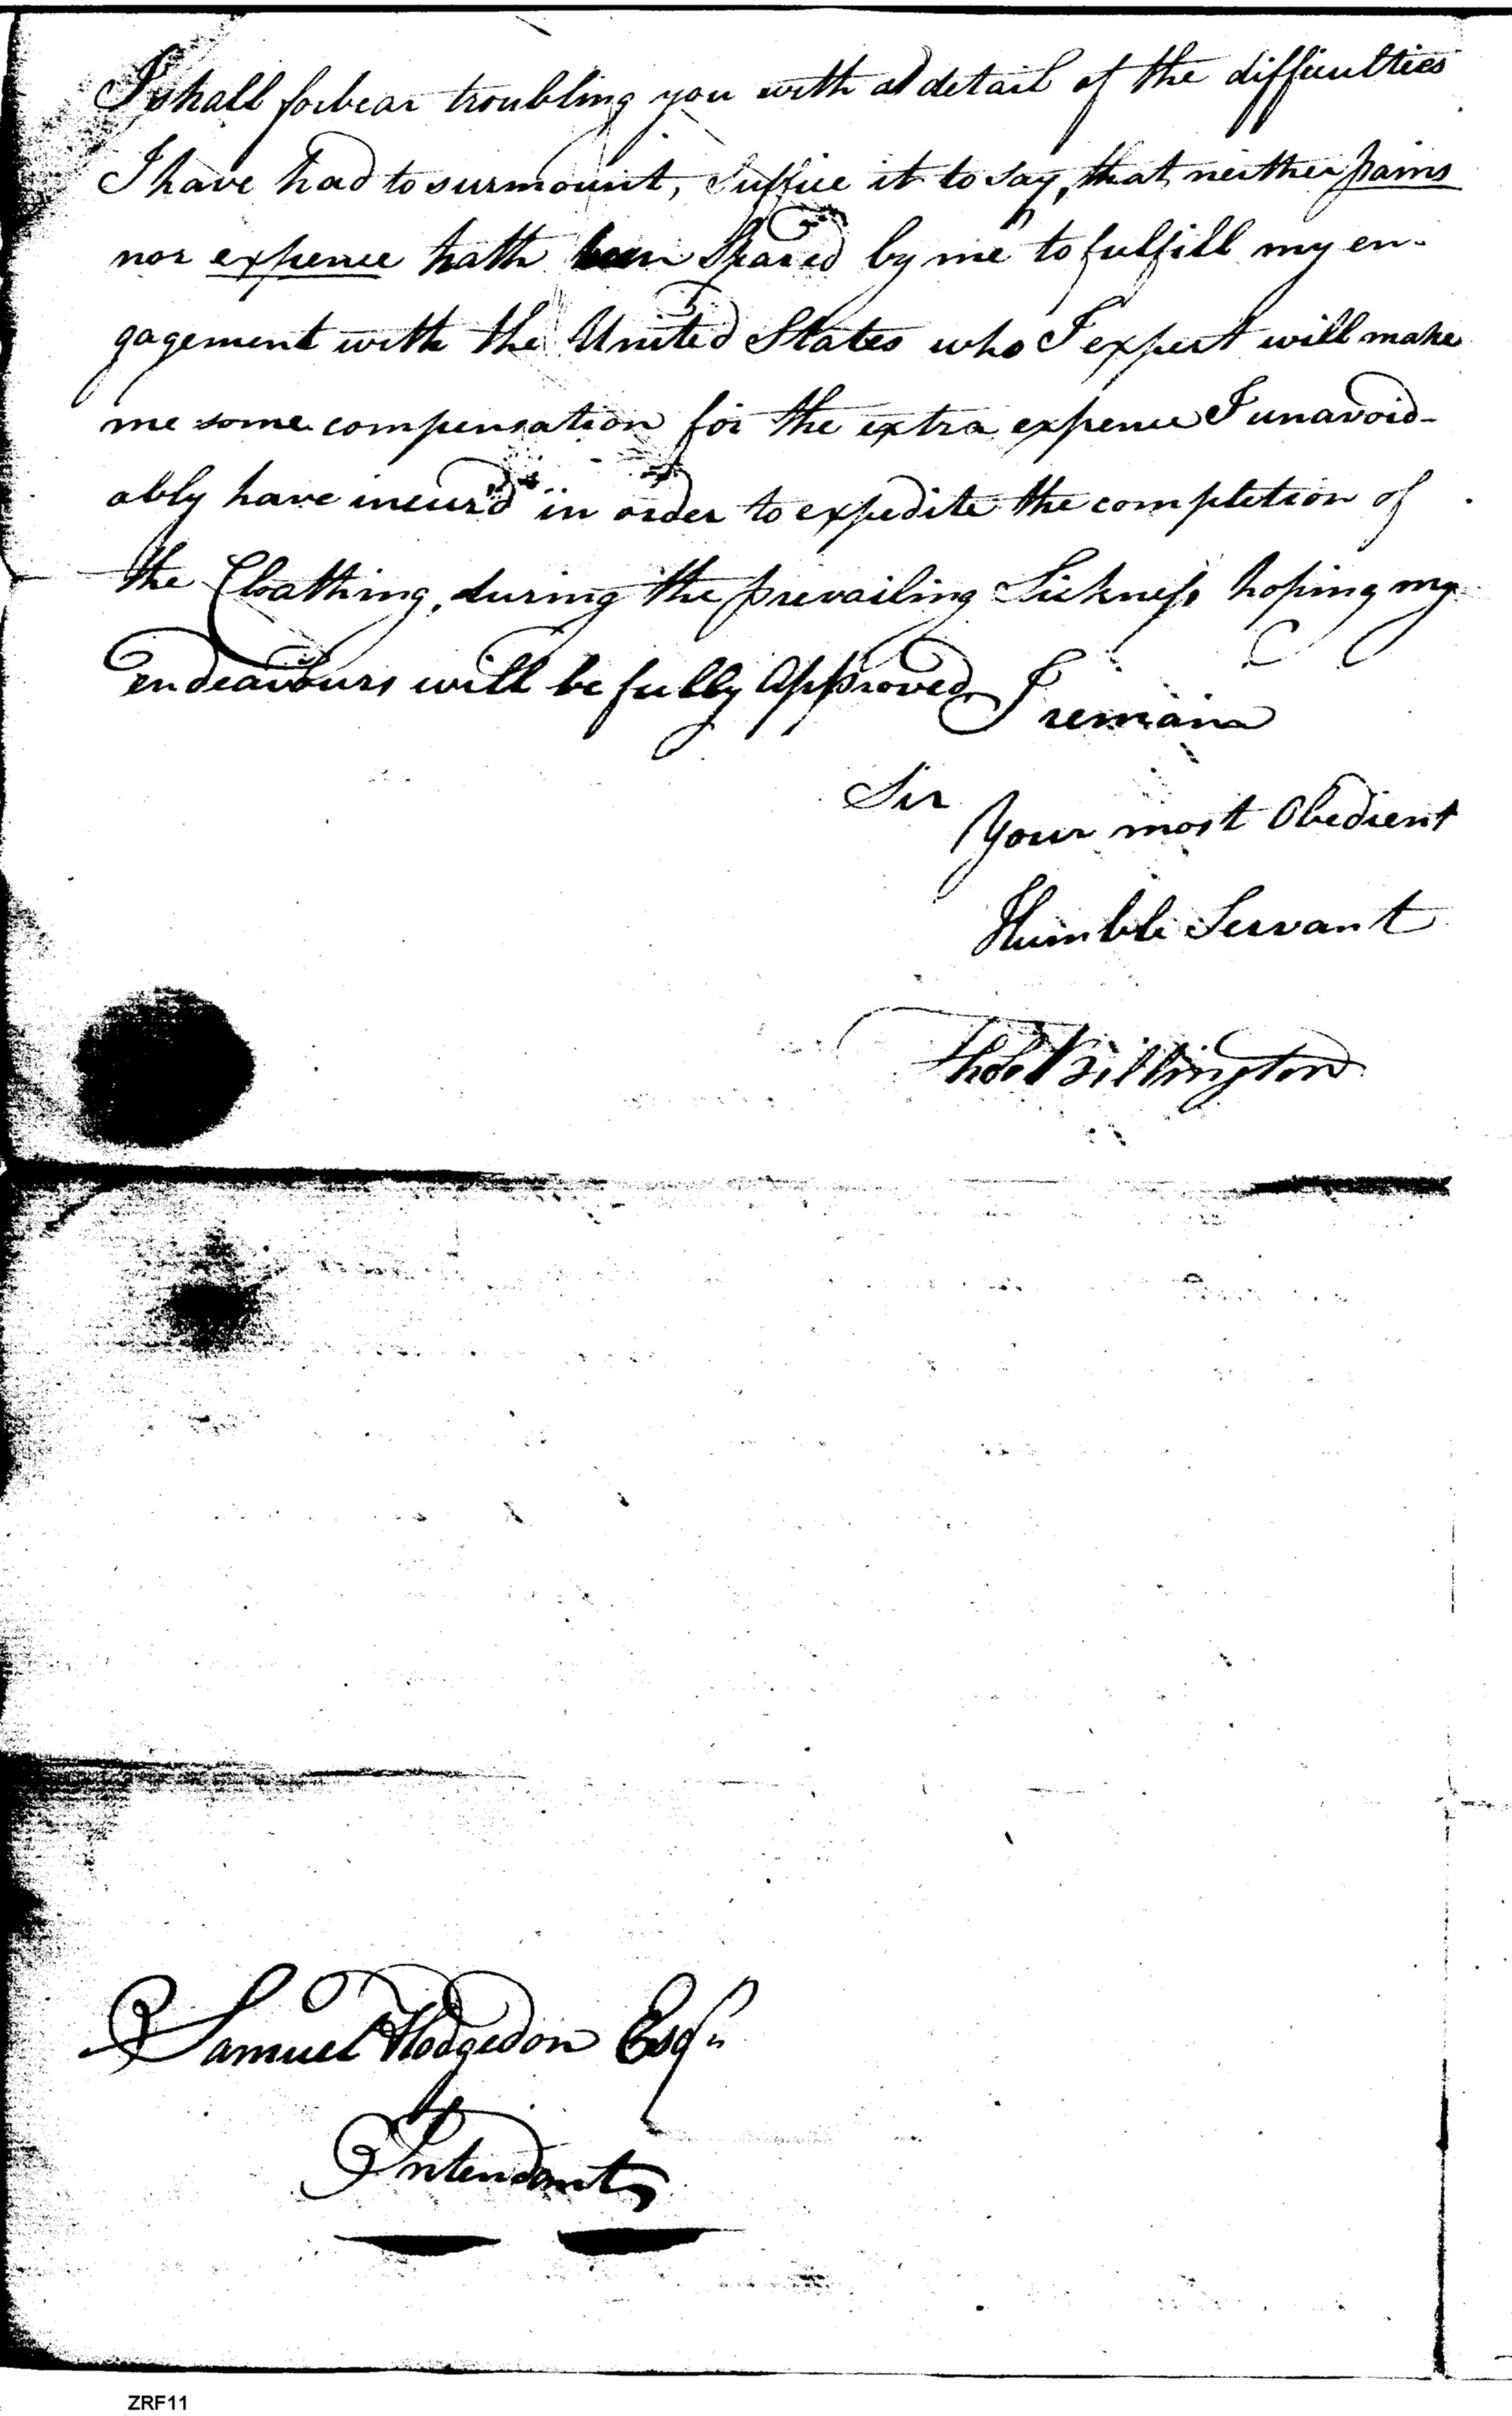 I shall forbear troubling you with a detail of the difficulties
I have had to surmount, Suffice it to say, that neither pains
nor expence hath been Spared by me to fulfill my en-
gagement with the United States who I expect will make
me some compensation for the extra expence I unavoid-
ably have incur'd in order to expedite the completion of
the Cloathing, during the prevailing Sickness hoping my
endeavours will be fully Approved I remain
Sir
Your most Obedient
Humble Servant
Thos Billington
Samuel Hodgedon Esqr
Intendant
ZRF11